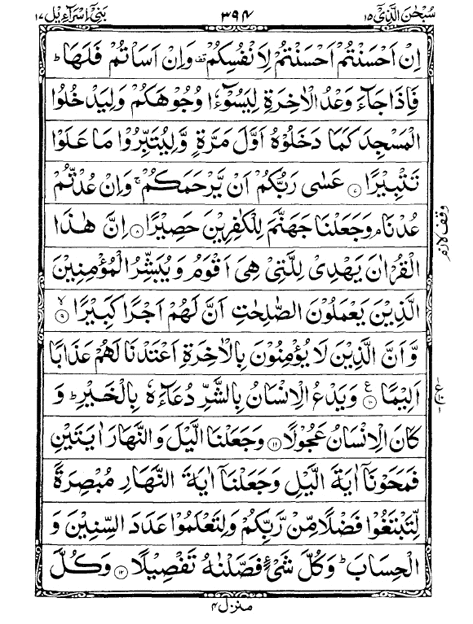 سُبْحٰنَ الَّذِیْ ١٥
٣٩٤
بَنِیْۤ اِسْرَآءِیْل ١٧
اِنْ اَحْسَنْتُمْ اَحْسَنْتُمْ لِاَنْفُسِكُمْ ۫ وَاِنْ اَسَاْتُمْ فَلَهَا ؕ
فَاِذَا جَآءَ وَعْدُ الْاٰخِرَةِ لِیَسُوْٓءٗا وُجُوْهَكُمْ وَلِیَدْخُلُوا
الْمَسْجِدَ كَمَا دَخَلُوْهُ اَوَّلَ مَرَّةٍ وَّلِیُتَبِّرُوْا مَا عَلَوْا
تَتْبِیْرًا ﴿٧﴾ عَسٰی رَبُّكُمْ اَنْ یَّرْحَمَكُمْ ۚ وَاِنْ عُدْتُّمْ
عُدْنَا ۘ وَجَعَلْنَا جَهَنَّمَ لِلْكٰفِرِیْنَ حَصِیْرًا ﴿٨﴾ اِنَّ هٰذَا
الْقُرْاٰنَ یَهْدِیْ لِلَّتِیْ هِیَ اَقْوَمُ وَیُبَشِّرُ الْمُؤْمِنِیْنَ
الَّذِیْنَ یَعْمَلُوْنَ الصّٰلِحٰتِ اَنَّ لَهُمْ اَجْرًا كَبِیْرًا ﴿٩﴾ ۙ
وَّاَنَّ الَّذِیْنَ لَا یُؤْمِنُوْنَ بِالْاٰخِرَةِ اَعْتَدْنَا لَهُمْ عَذَابًا
اَلِیْمًا ﴿١٠﴾ ع وَیَدْعُ الْاِنْسَانُ بِالشَّرِّ دُعَآءَهٗ بِالْخَیْرِ ؕ وَ
كَانَ الْاِنْسَانُ عَجُوْلًا ﴿١١﴾ وَجَعَلْنَا الَّیْلَ وَالنَّهَارَ اٰیَتَیْنِ
فَمَحَوْنَاۤ اٰیَةَ الَّیْلِ وَجَعَلْنَاۤ اٰیَةَ النَّهَارِ مُبْصِرَةً
لِّتَبْتَغُوْا فَضْلًا مِّنْ رَّبِّكُمْ وَلِتَعْلَمُوْا عَدَدَ السِّنِیْنَ وَ
الْحِسَابَ ؕ وَكُلَّ شَیْءٍ فَصَّلْنٰهُ تَفْصِیْلًا ﴿١٢﴾ وَكُلَّ
وقف لازم
منزل ٤